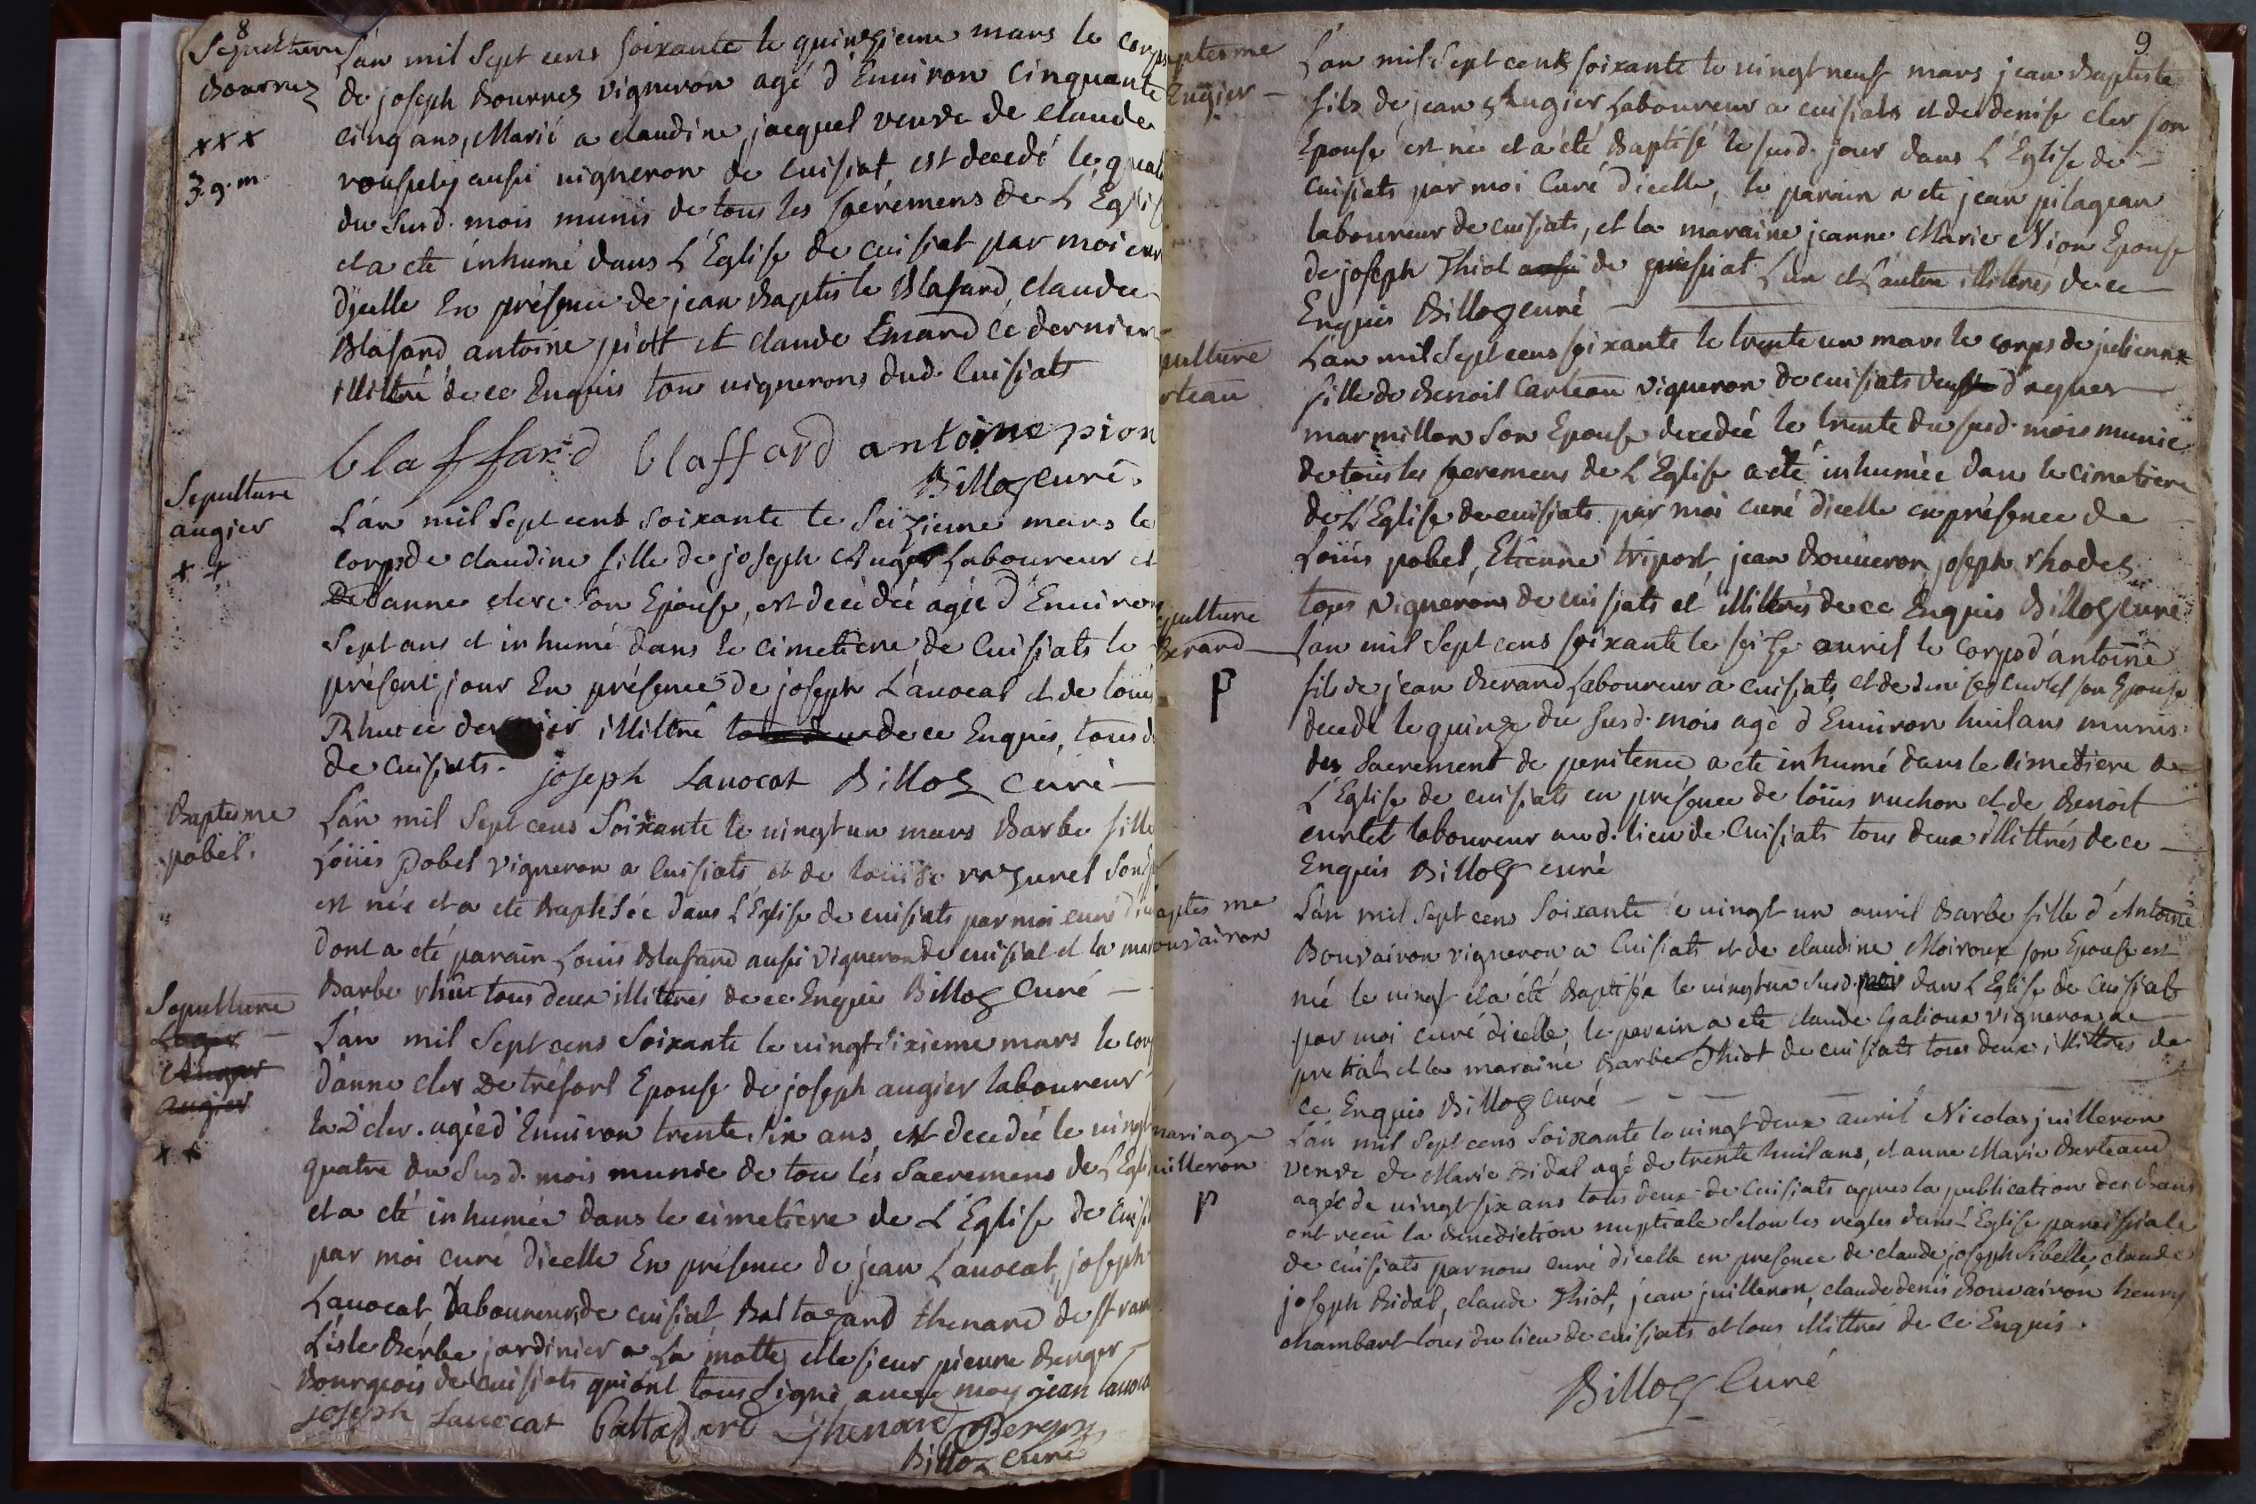 8
Sepulture
Bourrez
xxx
3. g. m.
L'an mil sept cens soixante le quinzieme mars le corps
de joseph Bourrez vigneron agé d'Environ cinquante
cinq ans, Marié a claudine jacquel veuve de claude
aussi vigneron de cuisiat, est decedé le
du susd. mois munis de tous les sacremens de L'Eglise
et a eté inhumé dans L'Eglise de cuisiat par moi curé
d'icelle En présence de jean Baptiste Blafard, claude
Blafard, antoine piott et claude Emard ce dernier
illittré de ce Enquis tous vignerons dud. Cuisiats
blaffard blaffard antoine pion
Billoz curé.
Sepulture
augier
x x
L'an mil sept cent soixante le seizieme mars le
corps de claudine fille de joseph Augier Laboureur et
D'anne clerc son Epouse, est decedée agée d'Environ
sept ans et inhumé dans le cimetiere de Cuisiats le
présent jour En présence de joseph L'avocat et de Loüis
Rhut ce dernier illittré de ce Enquis, tous d
de cuisiats. joseph Lavocat Billoz curé
Baptesme
pobel.
L'an mil sept cens soixante le vingt un mars Barbe fille
Loüis Pobel vigneron a Cuisiats et de Louise vazurel son
est née et a eté Baptisée dans L'Eglise de cuisiats par moi curé
dont a eté parain Louis Blafard aussi vigneron de cuisiat et la mar
Barbe rhut tous deux illitérés de ce Enquis Billoz Curé
Sepulture
Auger
augier
x x
L'an mil sept cens soixante le vingt sixieme mars le corps
d'anne cler De trésort Epouse de joseph augier laboureur
la D. cler. agée d'Environ trente six ans est decedée le vingt
quatre du susd. mois munie de tous les sacremens de L'Eglise
et a eté inhumée dans le cimetiere de L'Eglise de cuisi
par moi curé d'icelle En présence de jean Lavocat, joseph
Lavocat Laboureurs de cuisiat Baltazard thenard de st
Lisle Bérbe jardinier a La motte et le sieur pierre Berger
Bourgeois de cuisiats qui ont tous signé avec moy jean lavocat
joseph Lavocat baltazard thenard Berger
Billoz curé
9
aptesme
Augier
L'an mil sept cent soixante le vingt neuf mars jean Baptiste
fils de jean Augier Laboureur a cuisiats et de denise cler son
Epouse est née et a été Baptisé le susd. jour dans L'Eglise de
cuisiats par moi Curé d'icelle, le parain a ete jean pilagean
laboureur de cuisiats, et la maraine jeanne Marie Nion Epouse
de joseph Thiot aussi de cuisiat L'un et L'autre illiterés de ce
Enquis Billoz curé
pulture
rteau
L'an mil sept cens soixante le trente un mars le corps de julienne
fille de Benoit Carteau vigneron de cuisiats d'aques
marmillon son Epouse decedée le trente du susd. mois munie
de tous les sacremens de L'Eglise a eté inhumée dans le cimetiere
de L'Eglise de cuisiats par moi curé d'icelle en présence de
Loüis pobel, Etienne tripost, jean Bouveron, joseph rhodet
tous vignerons de cuisiats et illittérés de ce Enquis Billoz curé
pulture
Berard
p
L'an mil sept cens soixante le seize avril le corps d'antoine
fils de jean Berard Laboureur a cuisiats et de denise curlet son Epouse
decedé le quinze du susd. mois agé d'Environ huit ans munis
des sacrement de penitence a eté inhumé dans le cimetiere de
L'Eglise de cuisiats en présence de loüis ruchon et de Benoit
curlet laboureur aud. lieu de Cuisiats tous deux illittrés de ce
Enquis Billoz curé
aptesme
ouvairon
L'an mil sept cens soixante le vingt un avril Barbe fille d'Antoine
Bouvairon vigneron a Cuisiats et de claudine Moiroux son Epouse est
née le vingt et a été Baptisée le vingt un susd. mois dans L'Eglise de Cuisiats
par moi curé d'icelle, le parain a eté claude Galioux vigneron a
pretiat et la maraine Barbe Thiot de cuisiats tous deux illittrés de
ce Enquis Billoz curé
mariage
uilleron
p
L'an mil sept cens soixante le vingt deux avril Nicolas juilleron
veuve de Marie Bidal agé de trente huit ans, et anne Marie Berteaud
agée de vingt six ans tous deux de Cuisiats apres la publication des bans
ont recu la Benediction nuptiale selon les regles dans L'Eglise paroissiale
de cuisiats par nous curé d'icelle en presence de claude joseph sibelle, claude
joseph Bidal, claude Thiot, jean juilleron, claude denis Bouvairon henry
chambart tous du lieu de cuisiats et tous illittrés de ce Enquis.
Billoz Curé